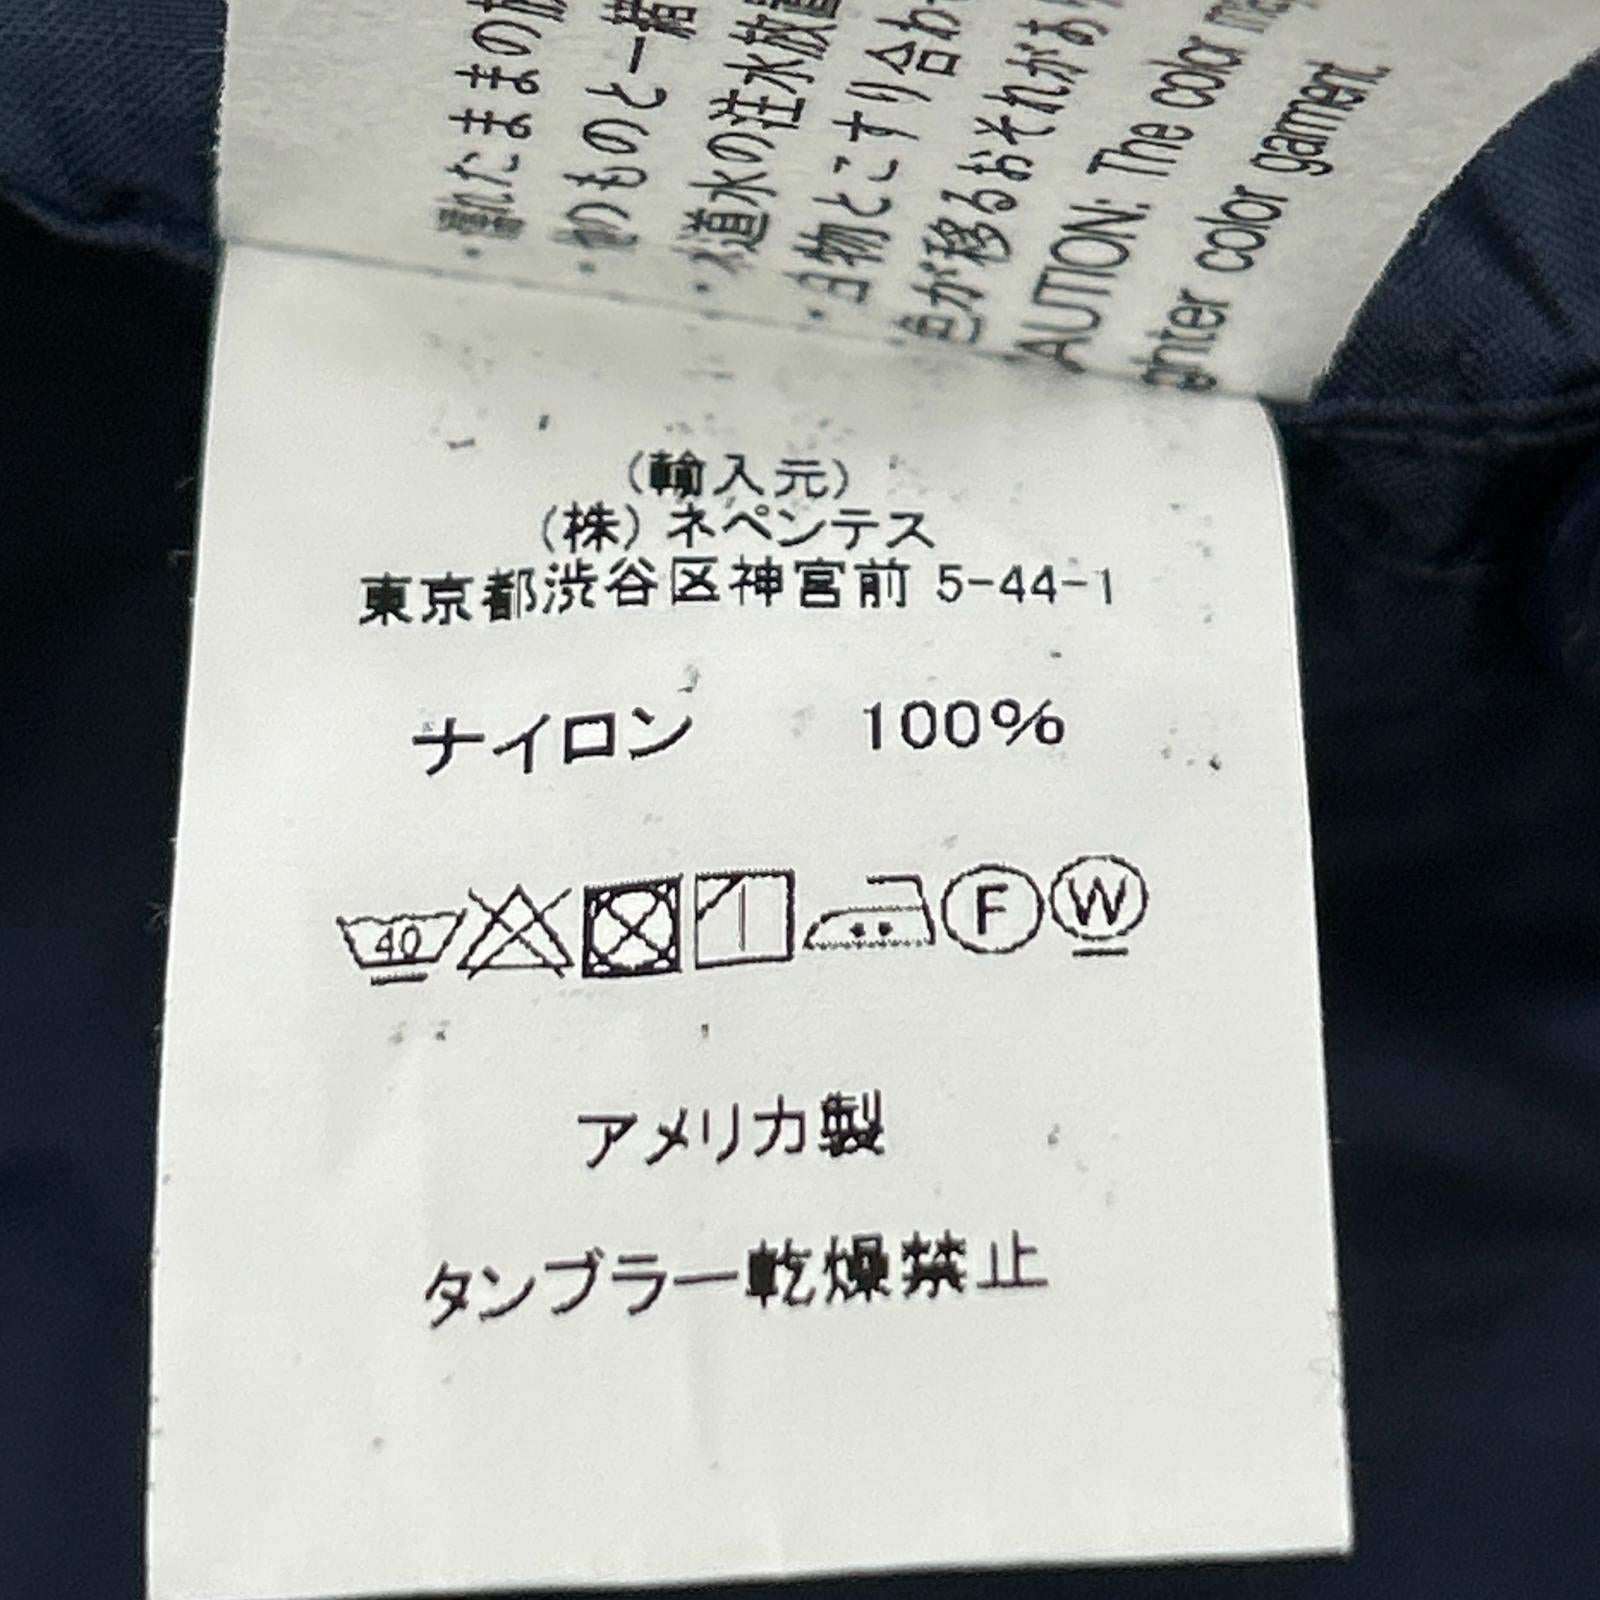 濡れたままの放
他のものと一緒
・水道水の注水放置
・白物とこすり合わ
色が移るおそれがあ
CAUTION: The color may
ghter color garment.
(輸入元)
(株) ネペンテス
東京都渋谷区神宮前 5-44-1
ナイロン 100%
40
F W
アメリカ製
タンブラー乾燥禁止